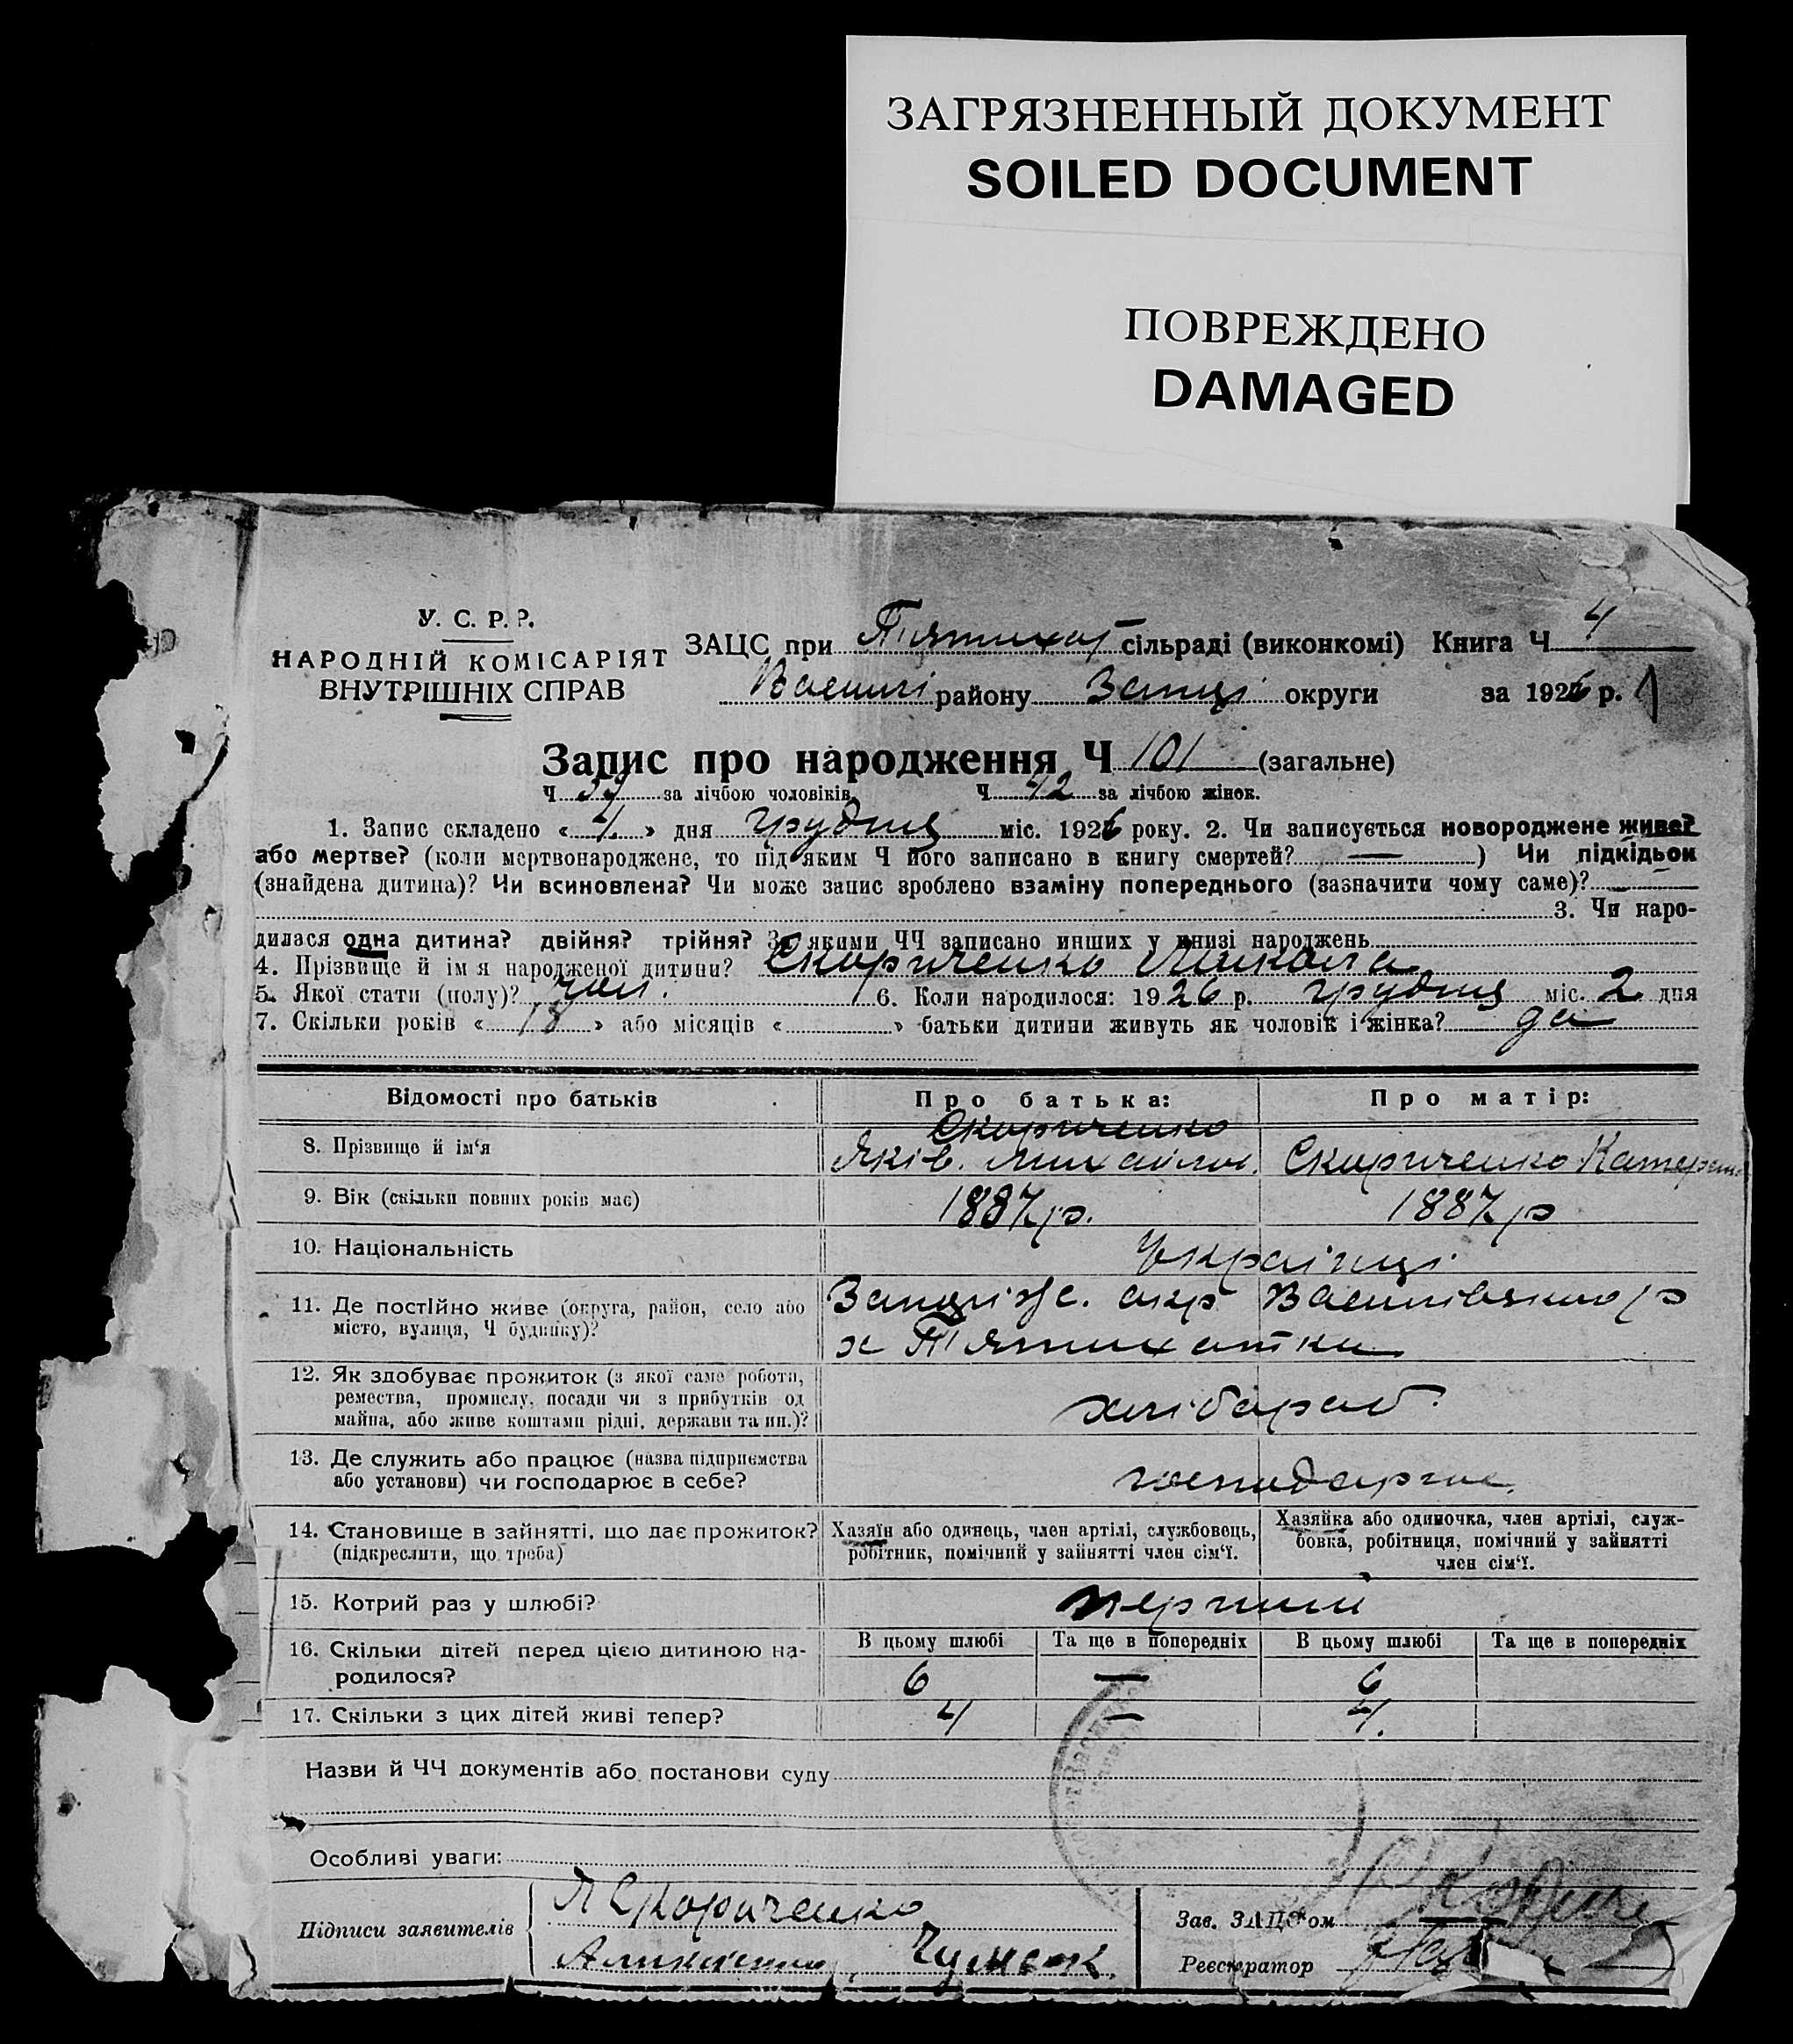 ЗАГРЯЗНЕННЫЙ ДОКУМЕНТ
SOILED DOCUMENT
ПОВРЕЖДЕНО
DAMAGED
У. С. Р. Р.
НАРОДНІЙ КОМІСАРІЯТ
ВНУТРІШНІХ СПРАВ
ЗАЦС при П'ятихат сільраді (виконкомі) Книга Ч 4
району округи за 1926 р.
Запис про народження Ч 101 (загальне)
Ч 59 за лічбою чоловіків. Ч 42 за лічбою жінок.
1. Запис складено « 4 » дня грудня міс. 1926 року. 2. Чи записується новороджене живе?
або мертве? (коли мертвонароджене, то під яким Ч його записано в книгу смертей? — ) Чи підкідьок
(знайдена дитина)? Чи всиновлена? Чи може запис зроблено взаміну попереднього (зазначити чому саме)? —
3. Чи наро-
дилася одна дитина? двійня? трійня? За якими ЧЧ записано инших у книзі народжень
4. Прізвище й ім'я народженої дитини? Скориченко Микола
5. Якої стати (полу)? чол. 6. Коли народилося: 1926 р. грудня міс. 2 дня
7. Скільки років « 18 » або місяців « » батьки дитини живуть як чоловік і жінка? да
Відомості про батьків Про батька: Про матір:
Скориченко
8. Прізвище й ім'я Яків. Михайлов. Скориченко Катерин
9. Вік (скільки повних років має) 1887 р. 1887 р
10. Національність Українці
11. Де постійно живе (округа, район, село або Запоріж. окр Василівського р
місто, вулиця, Ч будинку)? х П'ятихатки
12. Як здобуває прожиток (з якої саме роботи,
ремества, промислу, посади чи з прибутків од хлібороб.
майна, або живе коштами рідні, держави та ин.)?
13. Де служить або працює (назва підприємства
або установи) чи господарює в себе? господарює
14. Становище в зайнятті, що дає прожиток? Хазяїн або одинець, член артілі, службовець, Хазяйка або одиночка, член артілі, служ-
(підкреслити, що треба) робітник, помічний у зайнятті член сім'ї. бовка, робітниця, помічний у зайнятті
член сім'ї.
15. Котрий раз у шлюбі? перший
16. Скільки дітей перед цією дитиною на- В цьому шлюбі Та ще в попередніх В цьому шлюбі Та ще в попередніх
родилося? 6 — 6
17. Скільки з цих дітей живі тепер? 4 — 4.
Назви й ЧЧ документів або постанови суду
Особливі уваги:
Підписи заявителів Я Скориченко
Чумак
Зав. ЗАЦС'ом
Реєстратор